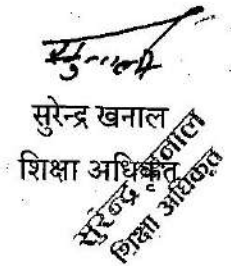 सुरेन्द्र खनाल
शिक्षा अधिकृत
सुरेन्द्र खनाल
शिक्षा अधिकृत